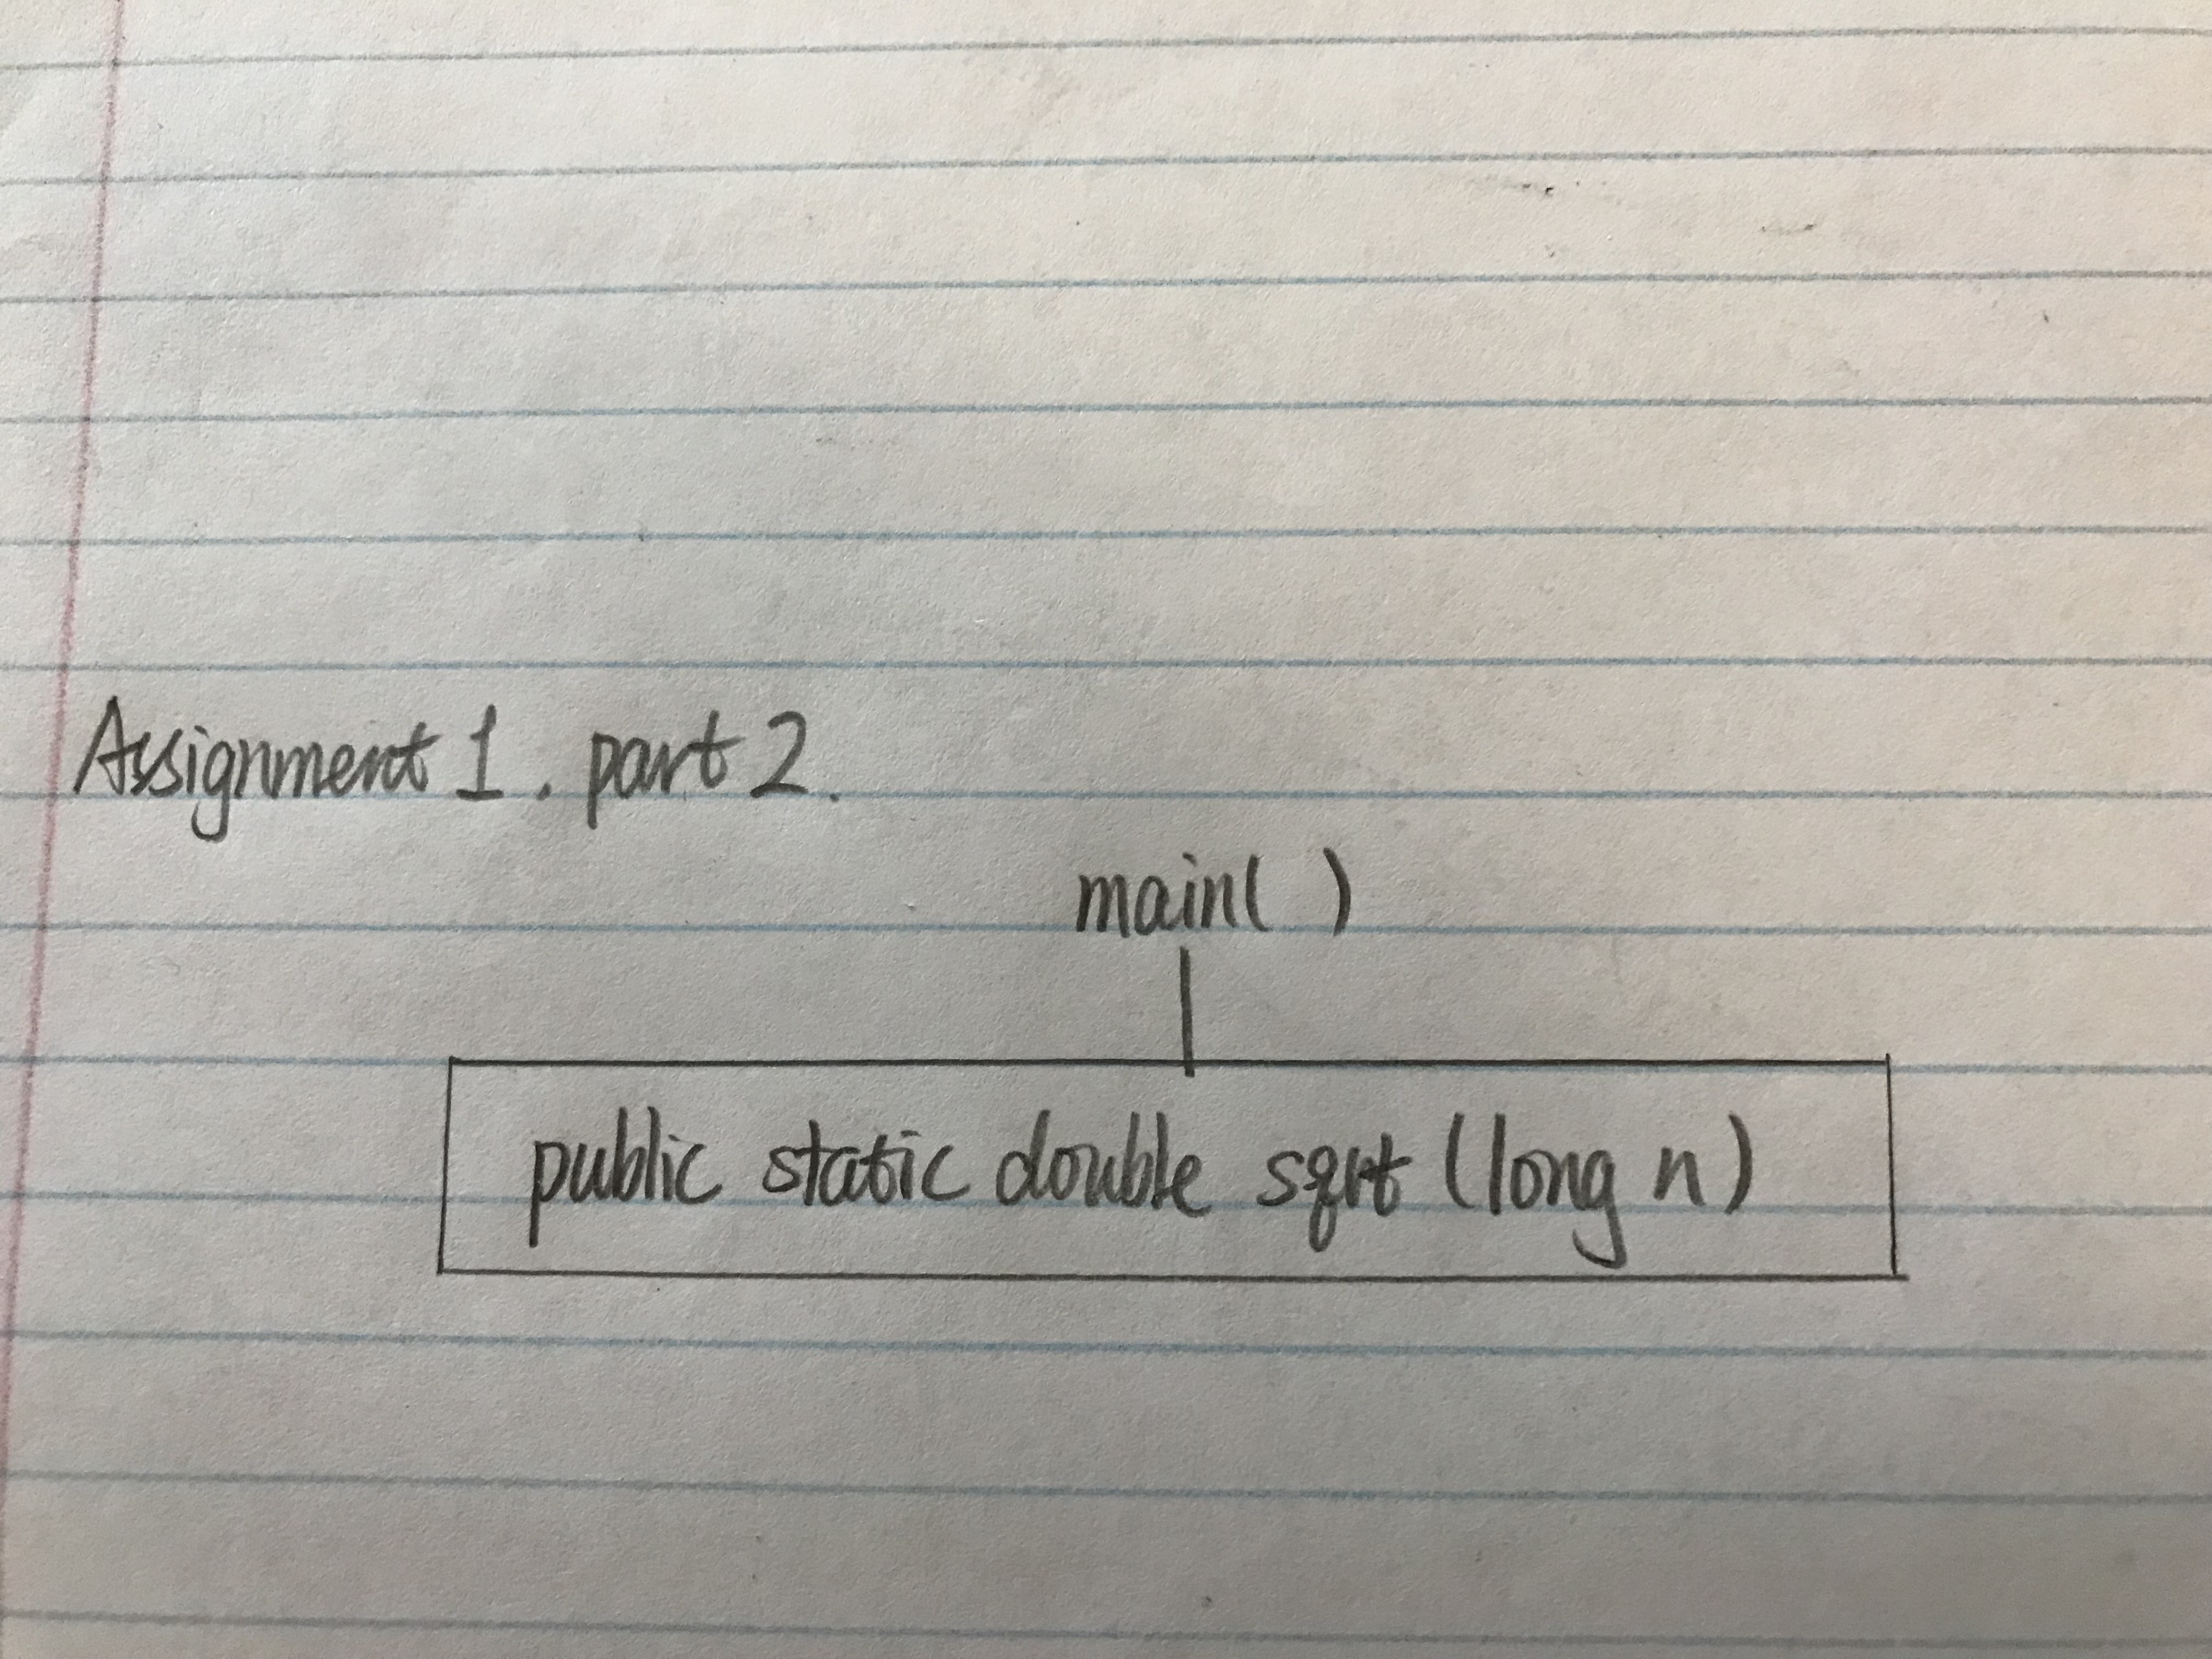 Assignment 1. part 2.
main( )
public static double sqrt (long n)